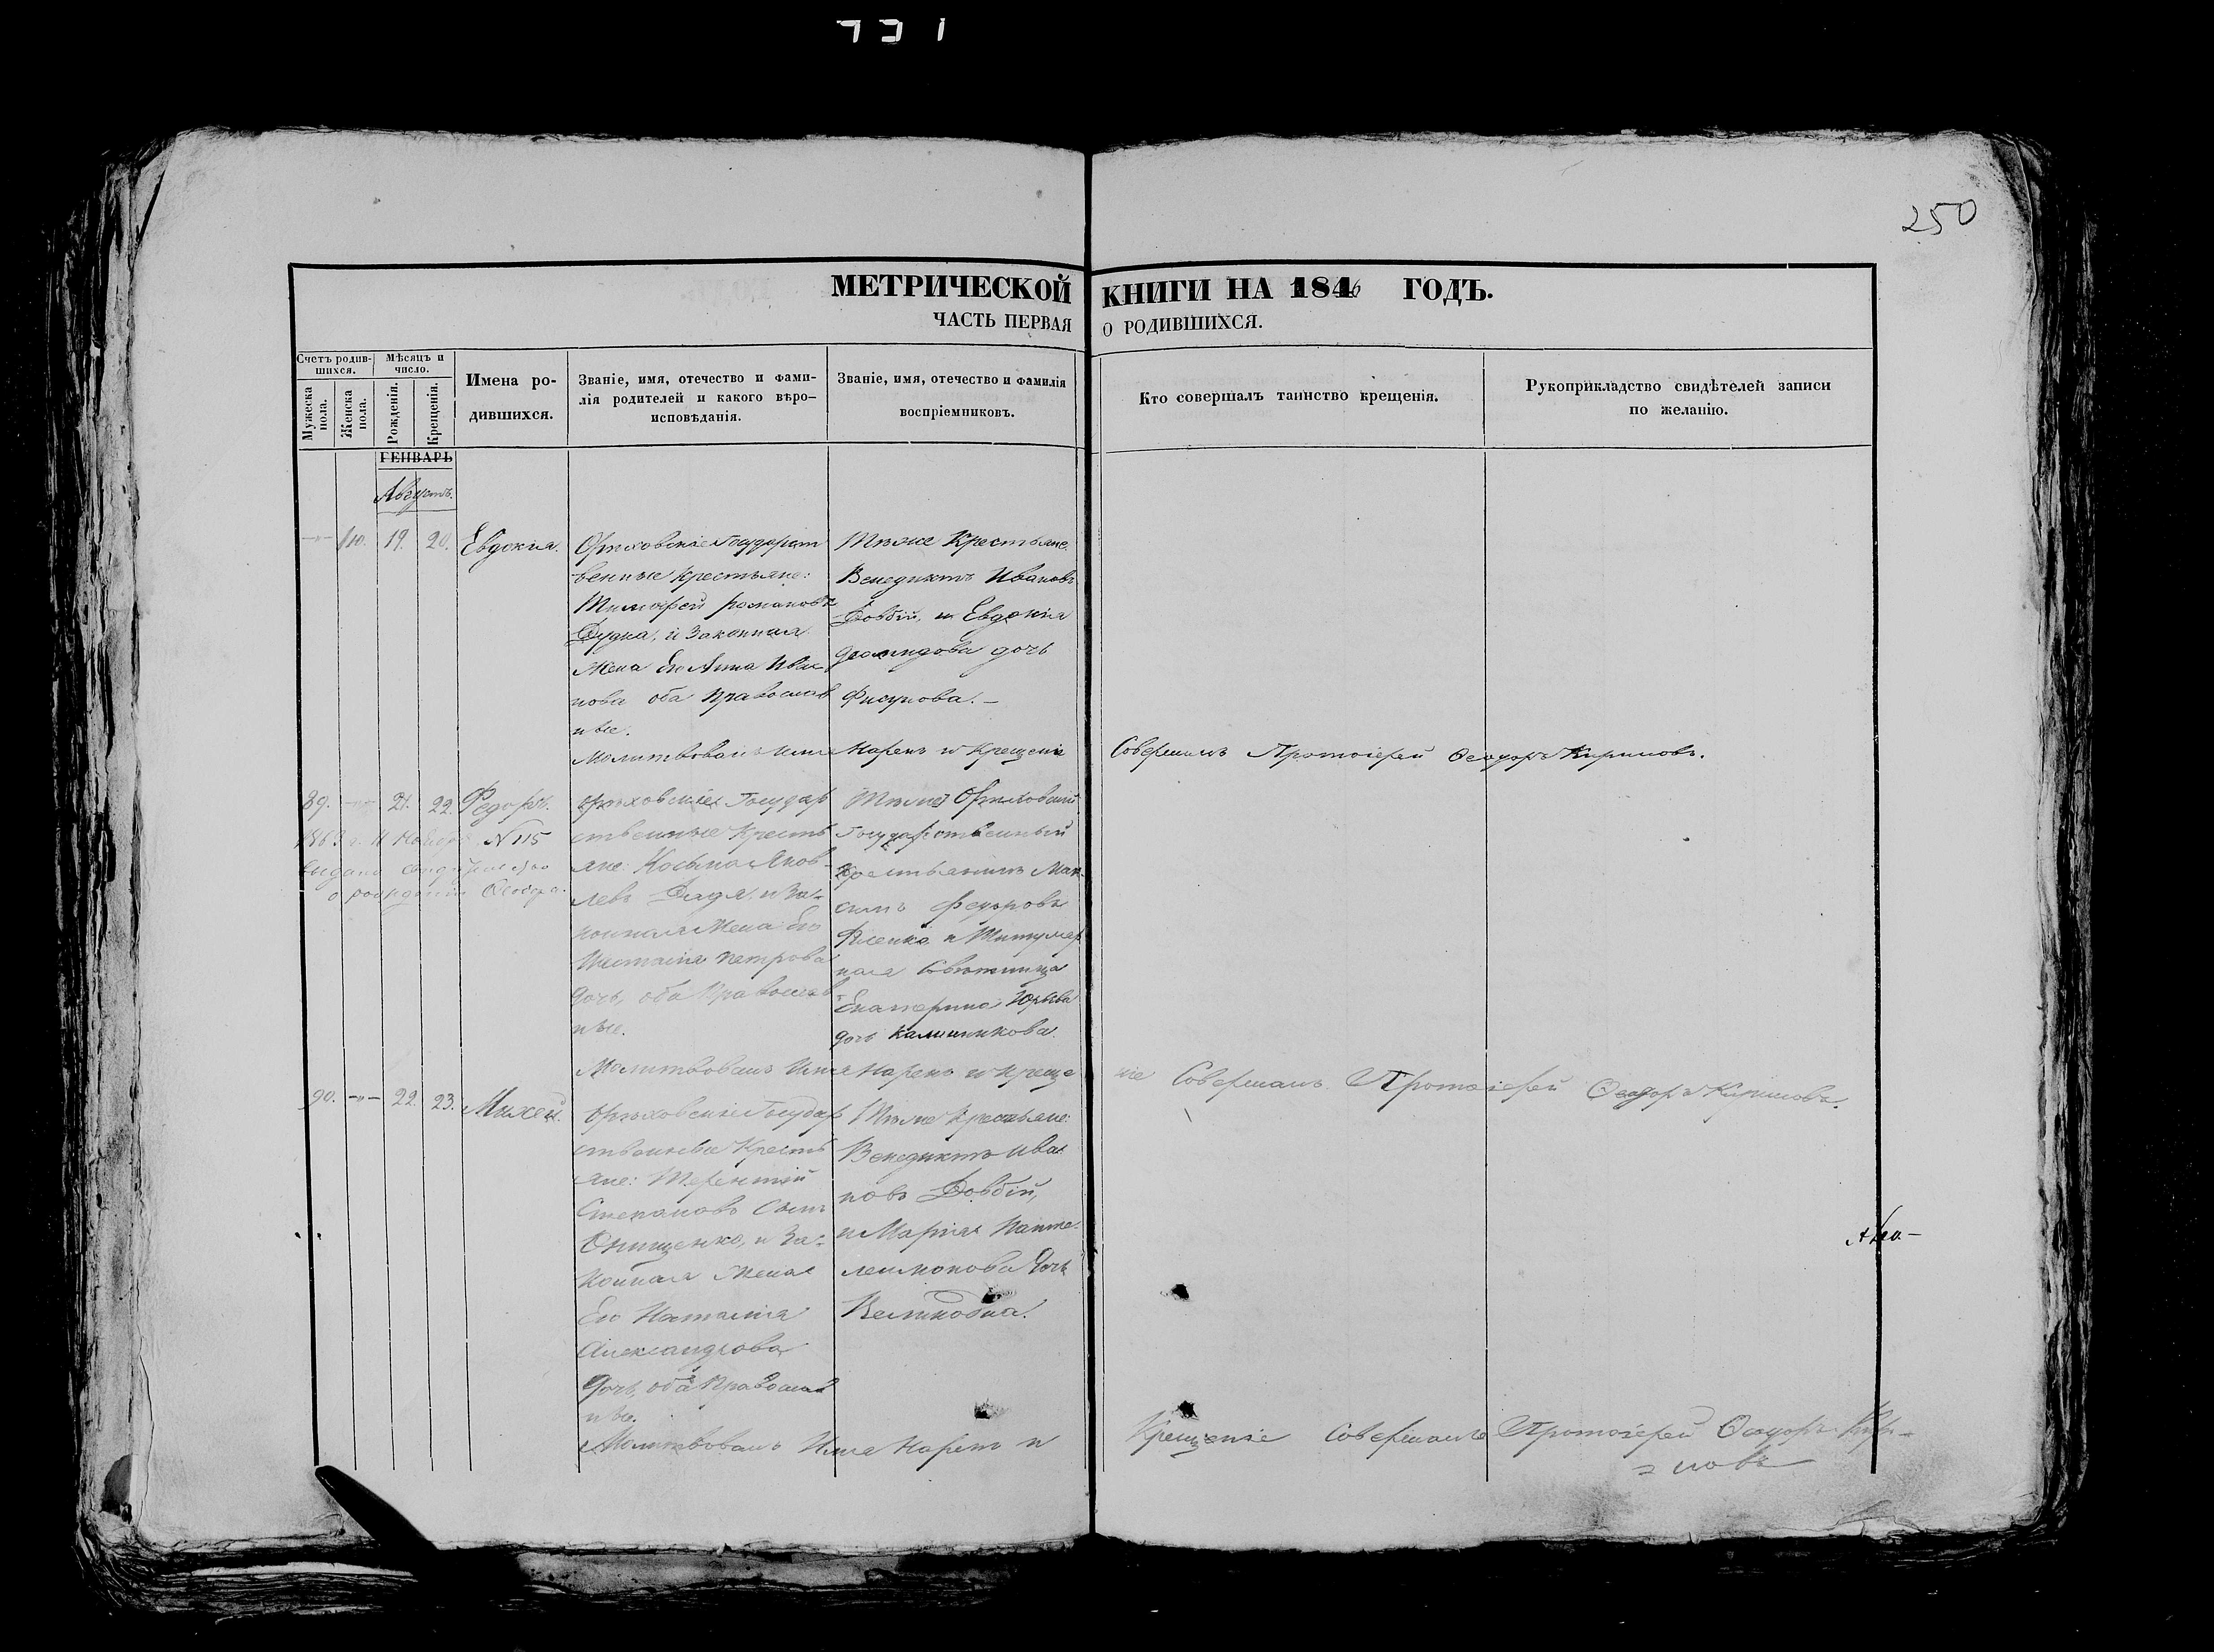 250
МЕТРИЧЕСКОЙ КНИГИ НА 1846 ГОДЪ.
ЧАСТЬ ПЕРВАЯ О РОДИВШИХСЯ.
Счетъ родив-
шихся.
Мужеска пола.
Женска пола.
Мѣсяцъ и
число.
Рожденія.
Крещенія.
Имена ро-
дившихся.
Званіе, имя, отечество и фами-
лія родителей и какого вѣро-
исповѣданія.
Званіе, имя, отечество и фамилія
воспріемниковъ.
Кто совершалъ таинство крещенія.
Рукоприкладство свидѣтелей записи
по желанію.
ГЕНВАРЬ
Августъ.
110. 19. 20. Евдокия.
Орѣховскіе Государст
венные крестьяне:
Тимофей романовъ
Дудка, и Законная
Жена Его Анна Ива
нова оба Православ
ные.
Тѣже Крестьяне
Венедиктъ Ивановъ
Довбій, и Евдокія
дочь
Фисунова.
Молитвовалъ Имя Нарекъ и Крещеніе
Совершилъ Протоіерей Ѳеодоръ Кириловъ.
89. 21. 22. Федоръ.
№ 115
о рождении Ѳеодора.
Орѣховскіе Государ
ственные Кресть
яне: Косьма Яков-
левъ и За-
конная Жена Его
Петрова
дочь, оба Православ
ные.
Орѣховскій
Государственный
Крестьянинъ Мак
симъ Федоровъ
и Титуляр
ная Совѣтница
Екатерина
дочь Калинникова.
Молитвовалъ Имя Нарекъ и Креще
ніе Совершалъ Протоіерей Ѳеодоръ Кириловъ.
90. 22. 23. Михей.
Орѣховскіе Государ
ственные Кресть
яне: Терентий
Степановъ Сынъ
Онищенко, и За-
конная Жена
Его Наталія
Александрова
Дочь, оба Православ
ные.
Тѣже Крестьяне:
Венедиктъ Ива
новъ Довбій,
и Марія Панте-
леимонова Дочь
Великодна.
Молитвовалъ Имя Нарекъ и
Крещеніе Совершалъ Протоіерей Ѳеодоръ Кири-
ловъ